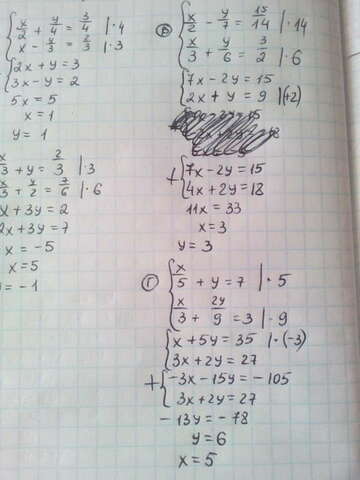 x/2 + y/4 = 3/4 | · 4
x - y/3 = 2/3 | · 3
2x + y = 3
3x - y = 2
5x = 5
x = 1
y = 1
x/3 + y = 2/3 | · 3
x/3 + y/2 = 7/6 | · 6
x + 3y = 2
2x + 3y = 7
x = -5
x = 5
y = -1
в) x/2 - y/7 = 15/14 | · 14
x/3 + y/6 = 3/2 | · 6
7x - 2y = 15
2x + y = 9 | (·2)
+ 7x - 2y = 15
4x + 2y = 18
11x = 33
x = 3
y = 3
г) x/5 + y = 7 | · 5
x/3 + 2y/9 = 3 | · 9
x + 5y = 35 | · (-3)
3x + 2y = 27
+ -3x - 15y = -105
3x + 2y = 27
-13y = -78
y = 6
x = 5